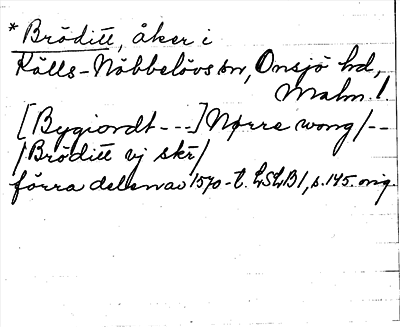 * Bröditt, åker i
Källs-Nöbbelövs sn, Onsjö hd,
Malm. l.
[Bygiordt ---] Nørre wong/--
/Bröditt vj skr/
förra delen av 1570-t. LSLB1, s. 145. orig.